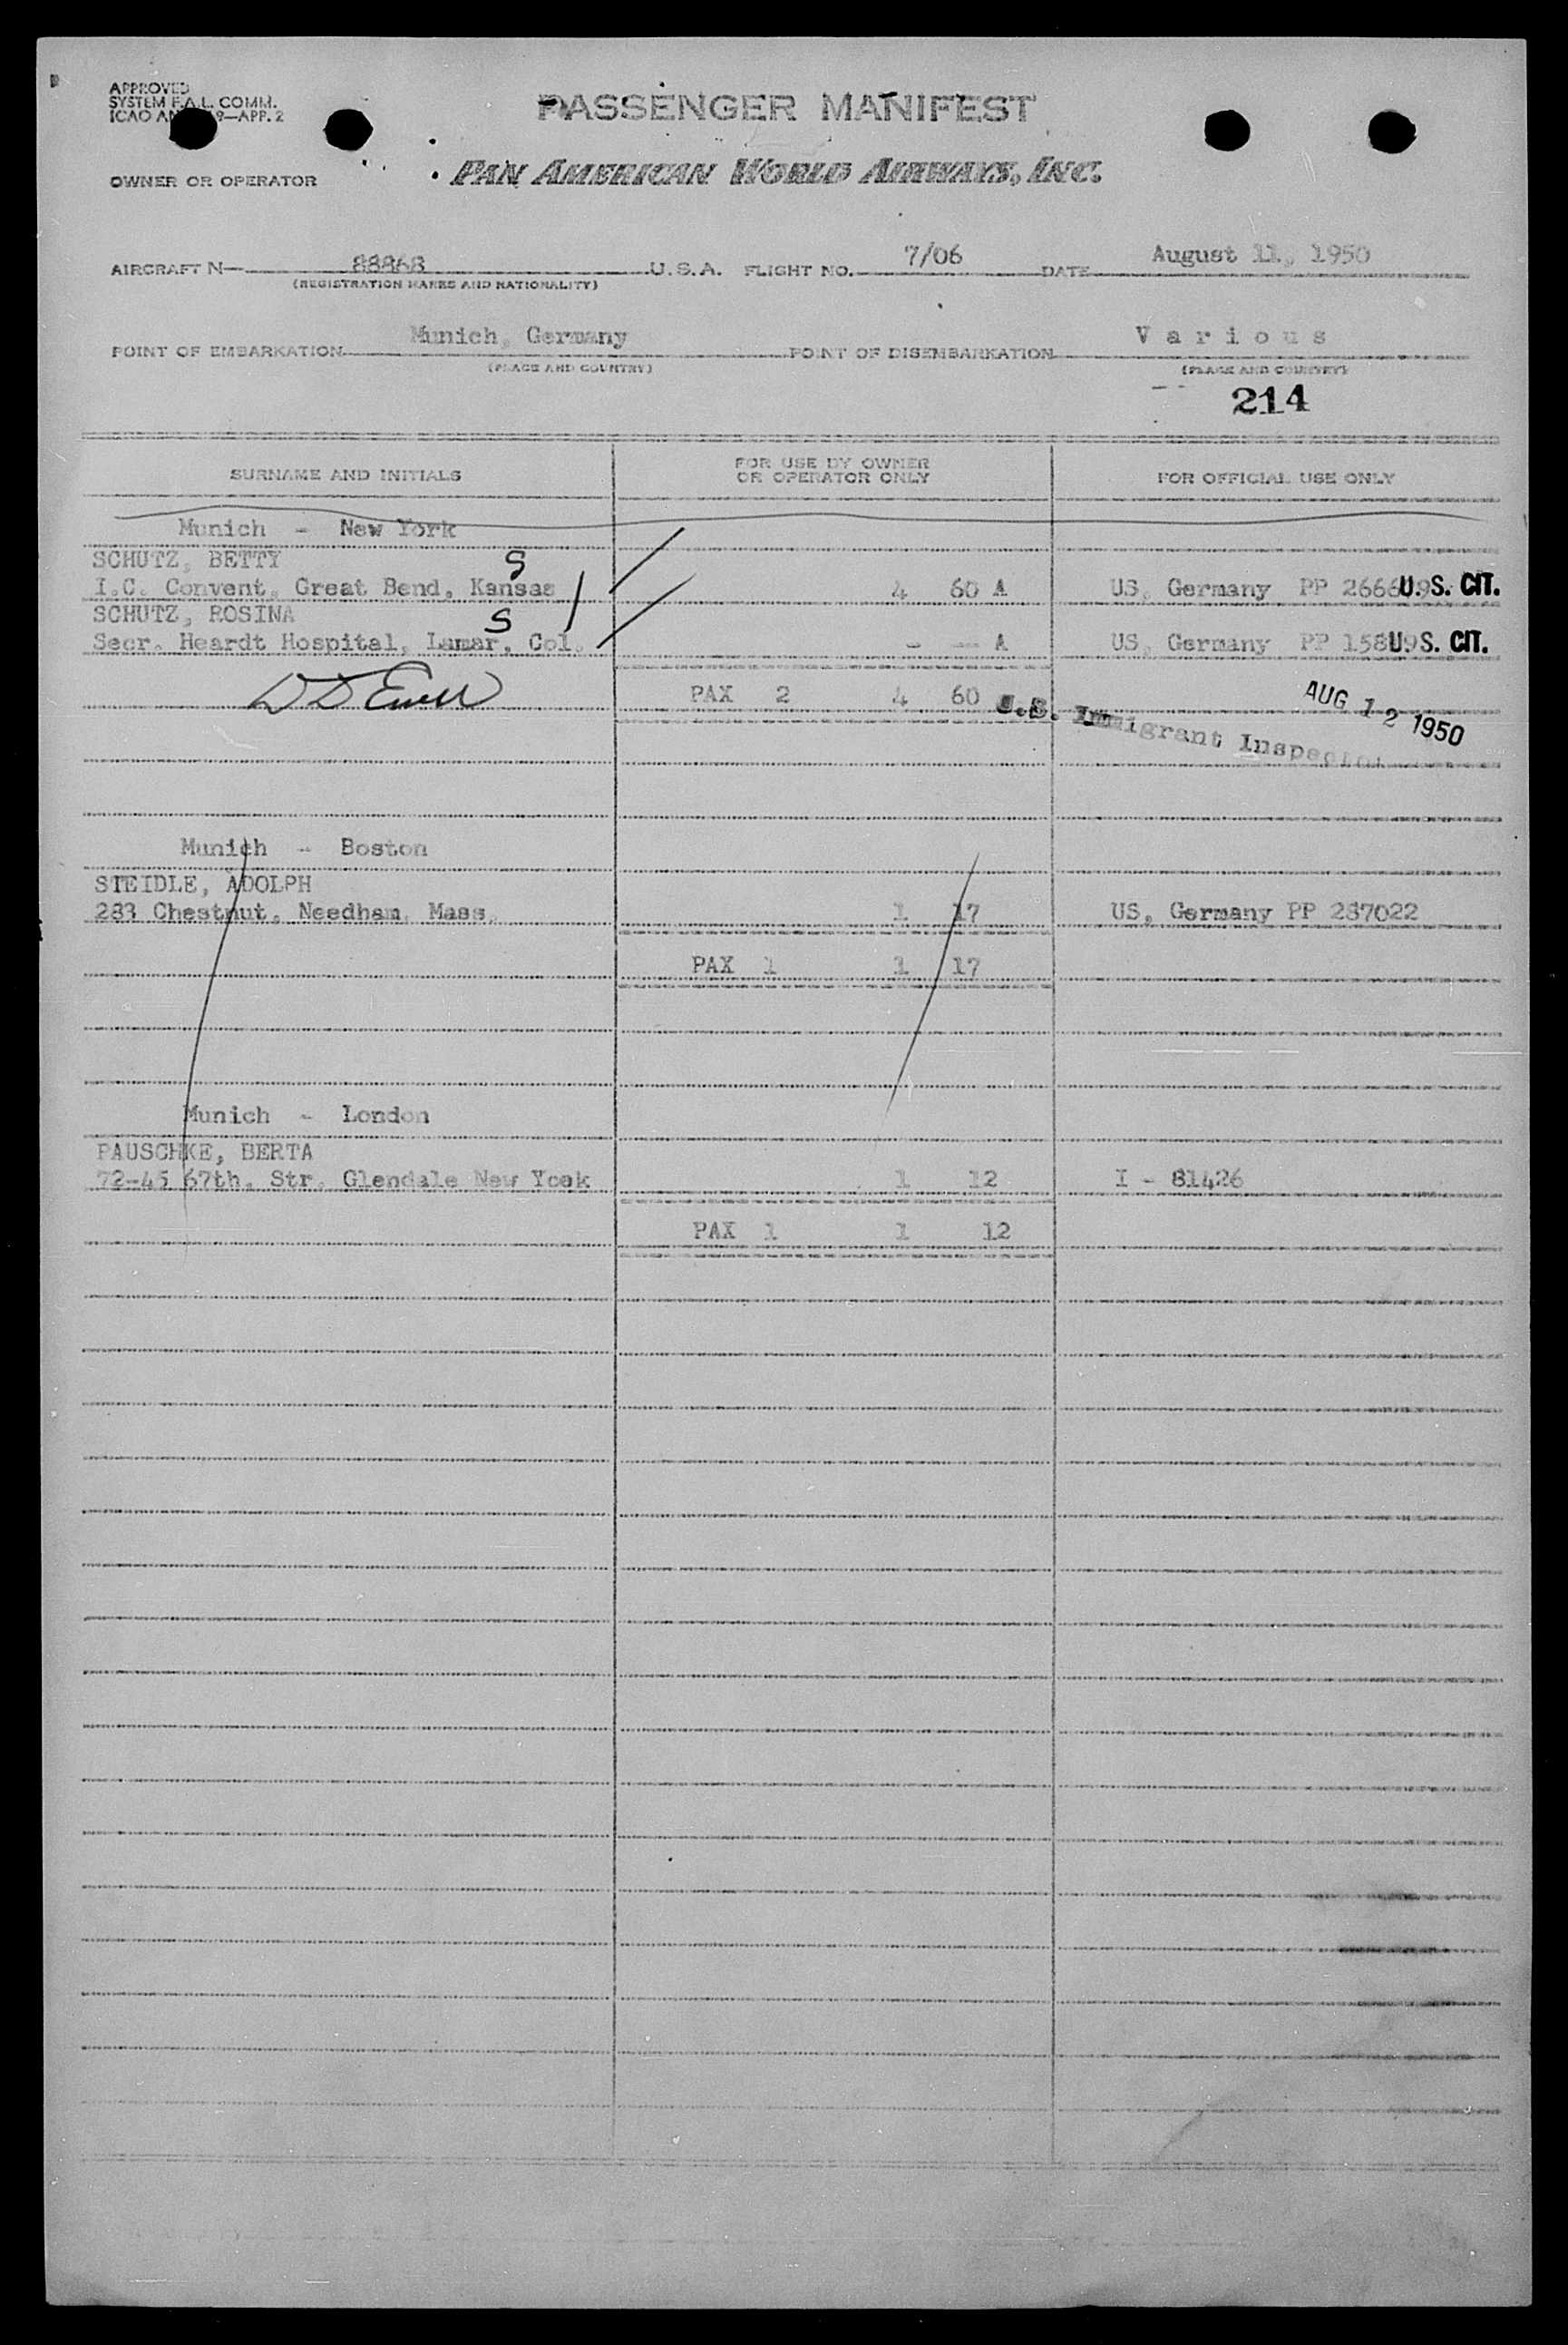 APPROVED
SYSTEM F.A.L. COMM.
ICAO 9—APP. 2
PASSENGER MANIFEST
OWNER OR OPERATOR
PAN AMERICAN WORLD AIRWAYS, INC.
AIRCRAFT N— 88868 U.S.A. FLIGHT NO. 7/06 DATE August 11, 1950
(REGISTRATION MARKS AND NATIONALITY)
POINT OF EMBARKATION Munich, Germany POINT OF DISEMBARKATION Various
(PLACE AND COUNTRY) (PLACE AND COUNTRY)
214
SURNAME AND INITIALS FOR USE BY OWNER OR OPERATOR ONLY FOR OFFICIAL USE ONLY
Munich - New York
SCHUTZ, BETTY S
I.C. Convent, Great Bend, Kansas 4 60 A US, Germany PP U.S. CIT.
SCHUTZ, ROSINA S
Secr. Heardt Hospital, Lamar, Col. - — A US, Germany PP U.S. CIT.
PAX 2 4 60 AUG 12 1950
U.S. Immigrant Inspector
Munich - Boston
STEIDLE, ADOLPH
283 Chestnut, Needham, Mass. 1 17 US, Germany PP 287022
PAX 1 1 17
Munich - London
PAUSCHKE, BERTA
72-45 67th. Str. Glendale New Yook 1 12 I - 81426
PAX 1 1 12